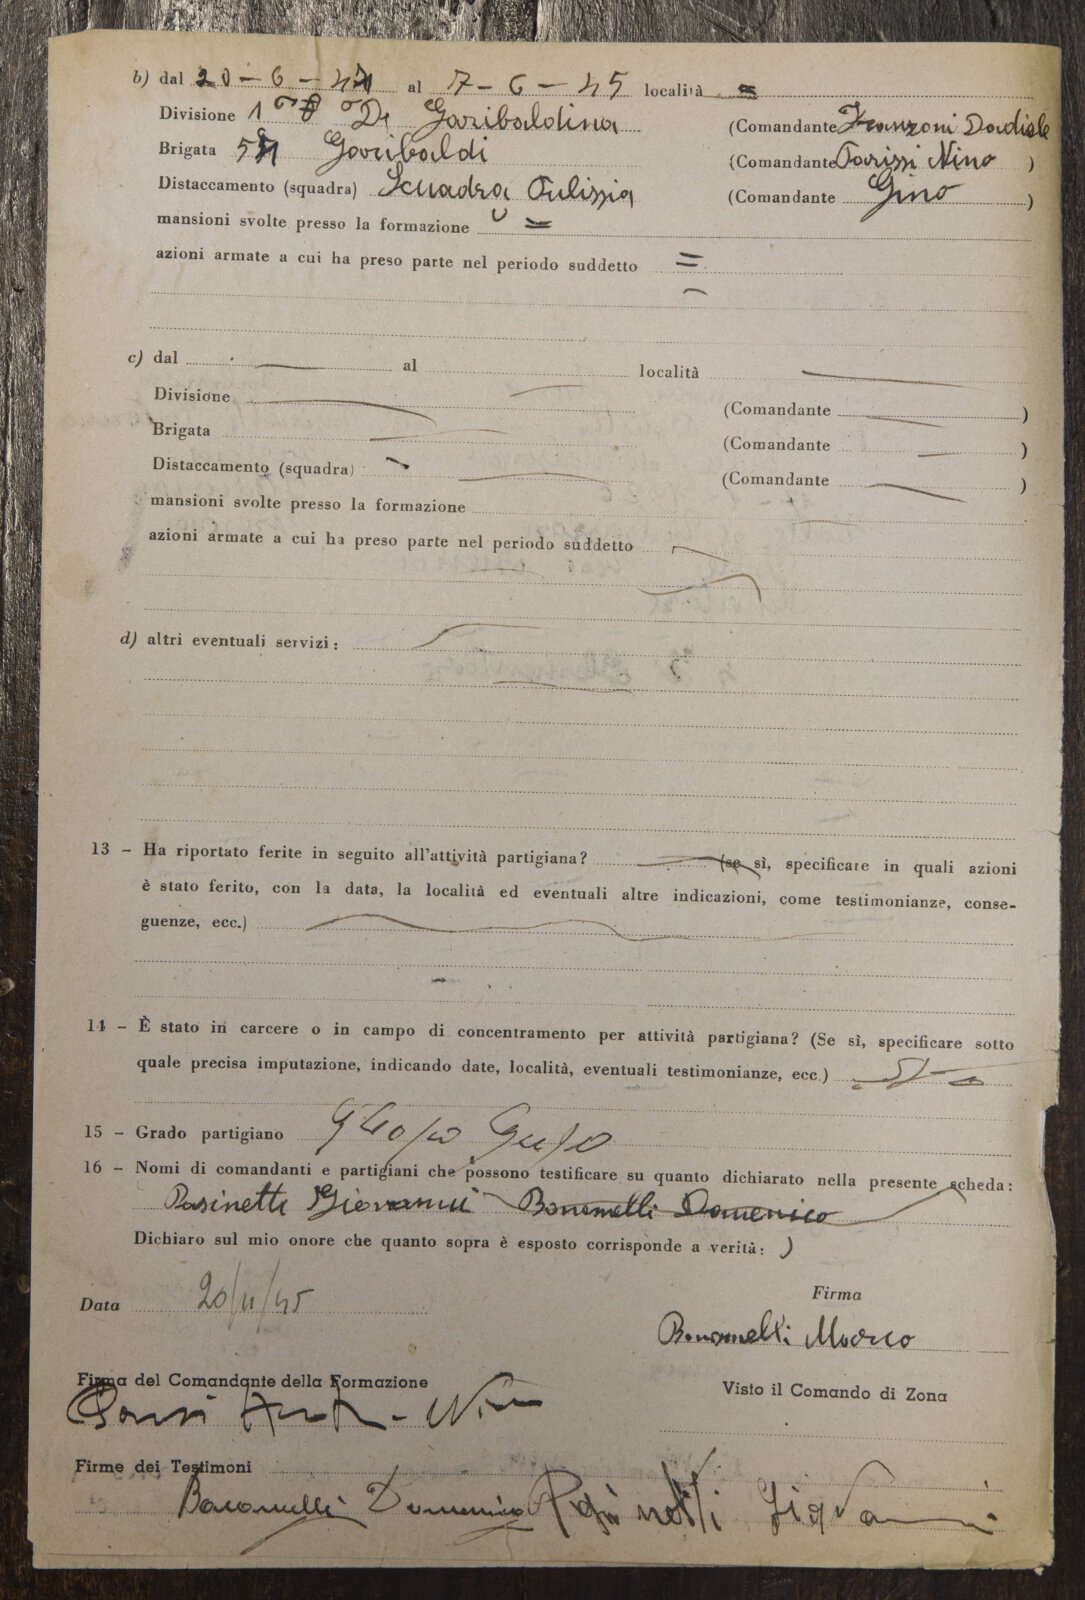 b) dal 20 - 6 - 44 al 7 - 6 - 45 località =
Divisione 1ª Dª Garibaldina (Comandante Franzoni Davide
Brigata 54 Garibaldi (Comandante Parissi Nino )
Distaccamento (squadra) Squadra Pulizzia (Comandante Gino )
mansioni svolte presso la formazione =
azioni armate a cui ha preso parte nel periodo suddetto =
c) dal al località
Divisione (Comandante )
Brigata (Comandante )
Distaccamento (squadra) (Comandante )
mansioni svolte presso la formazione
azioni armate a cui ha preso parte nel periodo suddetto
d) altri eventuali servizi :
13 – Ha riportato ferite in seguito all'attività partigiana? (se sì, specificare in quali azioni
è stato ferito, con la data, la località ed eventuali altre indicazioni, come testimonianze, conse-
guenze, ecc.)
14 – È stato in carcere o in campo di concentramento per attività partigiana? (Se sì, specificare sotto
quale precisa imputazione, indicando date, località, eventuali testimonianze, ecc.)
15 – Grado partigiano
16 – Nomi di comandanti e partigiani che possono testificare su quanto dichiarato nella presente scheda:
Pasinetti Giovanni Bonomelli Domenico
Dichiaro sul mio onore che quanto sopra è esposto corrisponde a verità: )
Firma
Data 20/11/45
Bonomelli Marco
Firma del Comandante della Formazione
Visto il Comando di Zona
Nino
Firme dei Testimoni
Bonomelli Domenico Pasinetti Giovanni